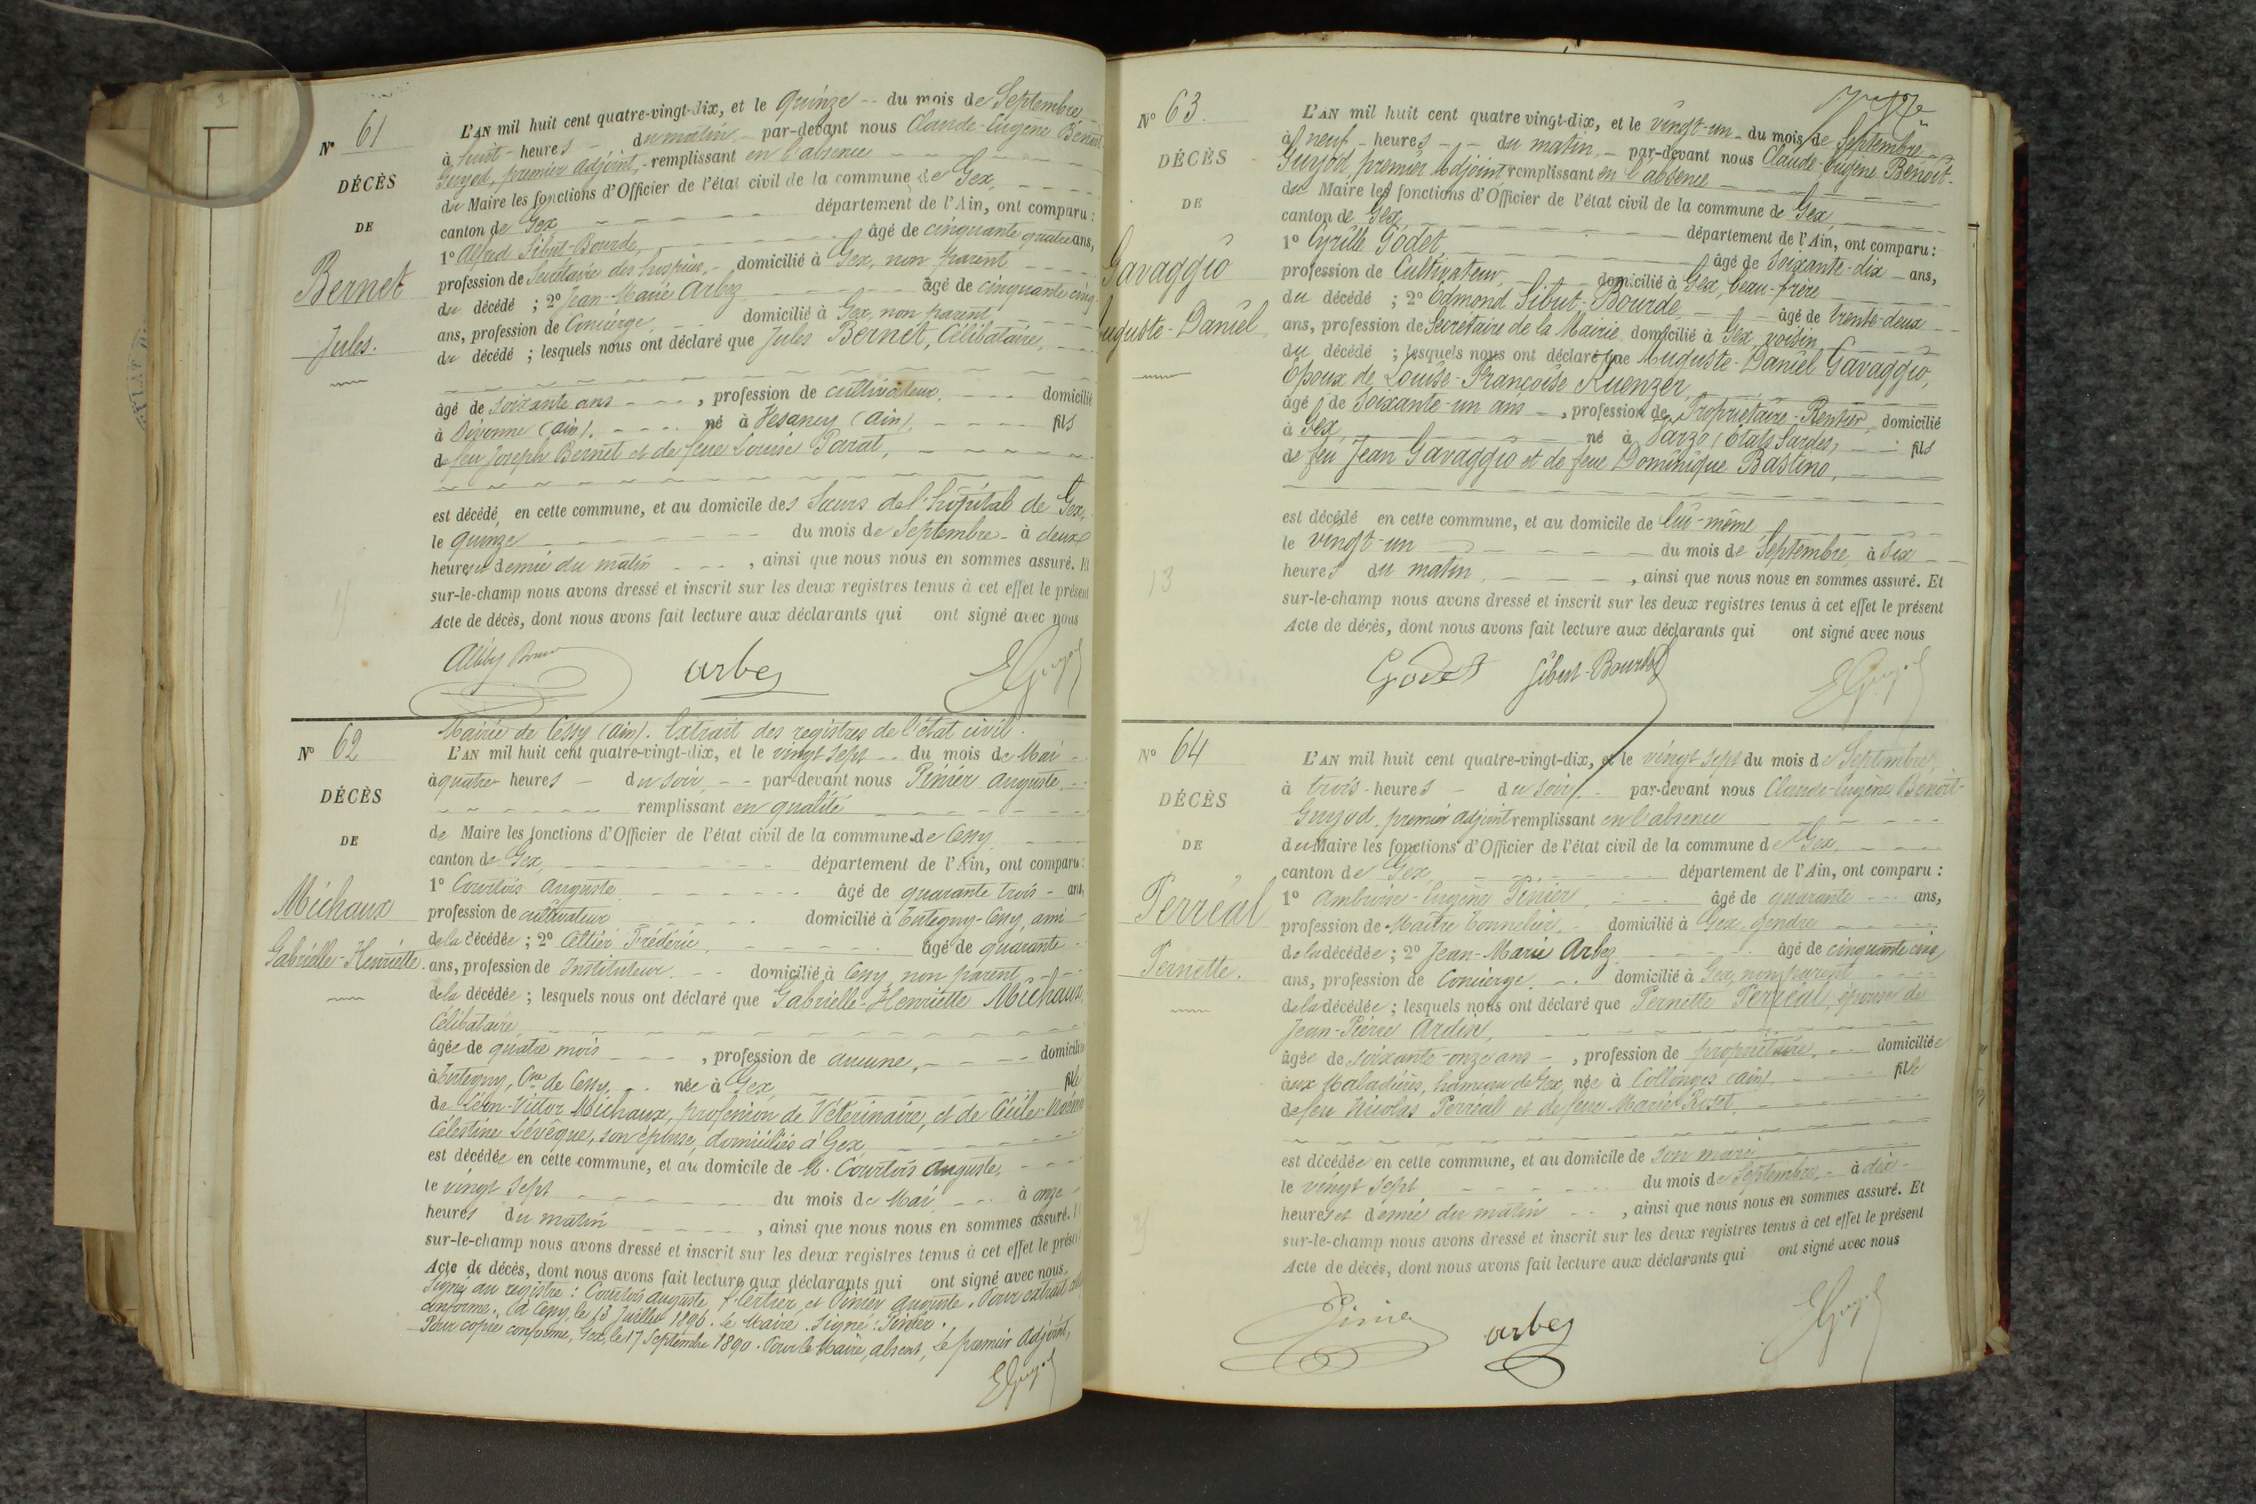 N° 61
DÉCÈS
DE
Bernet
Jules.
L'AN mil huit cent quatre-vingt-dix, et le quinze -- du mois de Septembre,
à huit - heures - du matin - par-devant nous Claude-Eugène Benoit
Guyod, premier adjoint, - remplissant en l'absence
du Maire les fonctions d'Officier de l'état civil de la commune de Gex,
canton de Gex département de l'Ain, ont comparu :
1° Alfred Sibut-Bourde, âgé de cinquante quatre ans,
profession de Secrétaire des hospices, - domicilié à Gex, non parent
du décédé ; 2° Jean-Marie Arbez âgé de cinquante cinq
ans, profession de Concierge, domicilié à Gex, non parent
du décédé ; lesquels nous ont déclaré que Jules Bernet, Célibataire,
âgé de soixante ans - - - , profession de cultivateur. - - - domicilié
à Divonne (Ain). - - - - né à Vesancy (Ain), - - - - fils
de feu Joseph Bernet et de feue Louise Parat,
est décédé, en cette commune, et au domicile des Sœurs de l'hôpital de Gex,
le quinze du mois de Septembre - à deux
heures et demie du matin - - - , ainsi que nous nous en sommes assuré. Et
sur-le-champ nous avons dressé et inscrit sur les deux registres tenus à cet effet le présent
Acte de décès, dont nous avons fait lecture aux déclarants qui ont signé avec nous
arbez
EGuyod
N° 62
DÉCÈS
DE
Michaux
Gabrielle-Henriette.
Mairie de Cessy (Ain). Extrait des registres de l'état civil.
L'AN mil huit cent quatre-vingt-dix, et le vingt sept -- du mois de Mai -
à quatre heures - du soir, - - par-devant nous Pinier Auguste -
remplissant en qualité
de Maire les fonctions d'Officier de l'état civil de la commune de Cessy
canton de Gex, département de l'Ain, ont comparu :
1° Courtois Auguste âgé de quarante trois - ans,
profession de cultivateur domicilié à Tutegny-Cessy, ami
de la décédée ; 2° Frédéric âgé de quarante
ans, profession de Instituteur. - - domicilié à Cessy, non parent
de la décédée ; lesquels nous ont déclaré que Gabrielle-Henriette Michaux,
Célibataire,
âgée de quatre mois - - - , profession de aucune, - - - domiciliée
à Tutegny, Cne de Cessy, - - née à Gex, fille
de Léon-Victor Michaux, profession de Vétérinaire, et de Cécile-Noémie
Célestine Lévêque, son épouse, domiciliés à Gex,
est décédée en cette commune, et au domicile de M. Courtois Auguste,
le vingt sept du mois de Mai - - - à onze
heures du matin , ainsi que nous nous en sommes assuré. Et
sur-le-champ nous avons dressé et inscrit sur les deux registres tenus à cet effet le présent
Acte de décès, dont nous avons fait lecture aux déclarants qui ont signé avec nous.
Signé au registre : Courtois Auguste, et Pinier Auguste. Pour extrait
conforme. à Cessy, le 13 Juillet 1890. Le Maire. Signé : Pinier.
Pour copie conforme, Gex, le 17 Septembre 1890. Pour le Maire, absent, Le premier Adjoint,
EGuyod
N° 63.
DÉCÈS
DE
Gavaggio
Auguste-Daniel
L'AN mil huit cent quatre vingt-dix, et le vingt-un - du mois de Septembre
à neuf - heures - - du matin, - par-devant nous Claude-Eugène Benoit-
Guyod, premier Adjoint remplissant en l'absence
du Maire les fonctions d'Officier de l'état civil de la commune de Gex
canton de Gex département de l'Ain, ont comparu :
1° Cyrille Godet âgé de Soixante-dix - ans,
profession de Cultivateur, domicilié à Gex, beau-frère
du décédé ; 2° Edmond Sibut-Bourde, âgé de trente-deux
ans, profession de Secrétaire de la Mairie domicilié à Gex, voisin
du décédé ; lesquels nous ont déclaré que Auguste-Daniel Gavaggio,
Epoux de Louise-Françoise Kuenzer,
âgé de Soixante-un ans - , profession de Propriétaire-Rentier, domicilié
à Gex né à Varzo (Etats Sardes) fils
de feu Jean Gavaggio et de feue Dominique Bastino,
est décédé en cette commune, et au domicile de lui-même
le vingt-un du mois de Septembre, à Six
heures du matin, , ainsi que nous nous en sommes assuré. Et
sur-le-champ nous avons dressé et inscrit sur les deux registres tenus à cet effet le présent
Acte de décès, dont nous avons fait lecture aux déclarants qui ont signé avec nous
Godet Sibut-Bourde EGuyod
13
N° 64
DÉCÈS
DE
Perréal
Pernette.
L'AN mil huit cent quatre-vingt-dix, et le vingt sept du mois de Septembre,
à trois - heures - du soir, - par-devant nous Claude-Eugène Benoit-
Guyod, premier adjoint remplissant en l'absence
du Maire les fonctions d'Officier de l'état civil de la commune de Gex,
canton de Gex, département de l'Ain, ont comparu :
1° Ambroise-Eugène Pinier, âgé de quarante --- ans,
profession de Maître Tonnelier, - domicilié à Gex, gendre
de la décédée ; 2° Jean-Marie Arbez âgé de cinquante cinq
ans, profession de Concierge, - - domicilié à Gex, non parent
de la décédée ; lesquels nous ont déclaré que Pernette Perréal, épouse de
Jean-Pierre Ardin,
âgée de soixante-onze ans - , profession de propriétaire, - domiciliée
aux Maladières, hameau de Gex, née à Collonges (Ain), fille
de feu Nicolas Perréal et de feue Marie Roset,
est décédée en cette commune, et au domicile de son mari
le vingt sept du mois de Septembre, - à dix -
heures et demie du matin - - , ainsi que nous nous en sommes assuré. Et
sur-le-champ nous avons dressé et inscrit sur les deux registres tenus à cet effet le présent
Acte de décès, dont nous avons fait lecture aux déclarants qui ont signé avec nous
Pinier
arbez
EGuyod